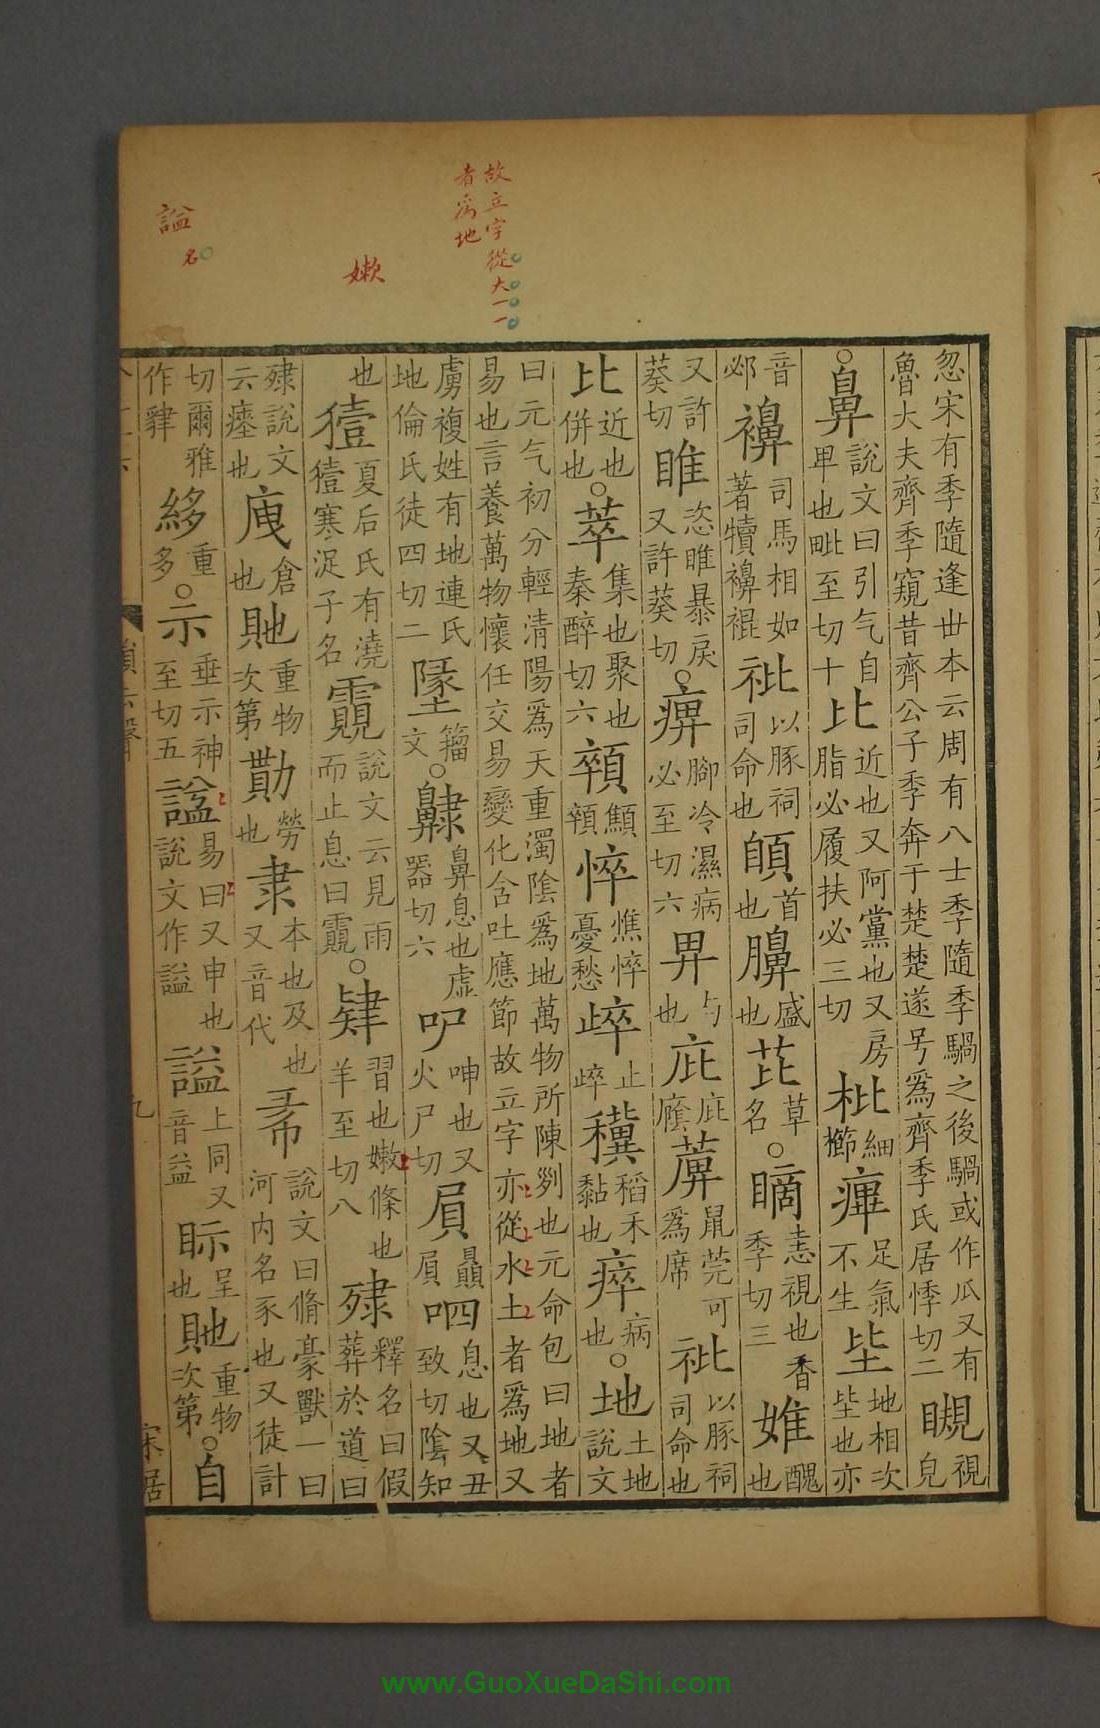 故立字從大一一
者為地
嫰
謚
名
忽宋有季隨逢世本云周有八士季隨季騧之後騧或作瓜又有
魯大夫齊季窺昔齊公子季奔于楚楚遂号為齊季氏居悸切二䁛視皃
○鼻說文曰引气自畀也毗至切十比近也又阿黨也又房脂必履扶必三切枇細櫛㾱足氣不生坒地相次坒也亦
音邲襣司馬相如著犢襣裩䃾以豚祠司命也䫁首也膞盛也芘草名○䁤恚視也香季切三婎醜也
又許葵切睢恣睢暴戾又許葵切○痹腳冷濕病必至切六畀与也庇庇廕萆鼠莞可為席䃾以豚祠司命也
比近也併也○萃集也聚也秦醉切六顇顦顇悴憔悴憂愁踤止踤穕稻禾黏也瘁病也○地土地說文
曰元气初分輕清陽為天重濁陰為地萬物所陳列也元命包曰地者
易也言養萬物懷任交易變化含吐應節故立字亦從水土者為地又
虜複姓有地連氏地倫氏徒四切二墬籀文○齂鼻息也虛器切六吚呻也又火尸切屓贔屓呬息也又丑致切陰知
也㹎夏后氏有澆㹎寒浞子名䨳說文云見雨而止息曰䨳○肄習也嫩條也羊至切八殔釋名曰假葬於道曰
殔說文云瘞也㢑倉也貤重物次第勩勞也隶本也及也又音代㣇說文曰脩豪獸一曰河内名豕也又徒計
切爾雅作貄䋾重多○示垂示神至切五謚易曰又申也說文作謚諡上同又音益眎呈也貤重物次第○自
九